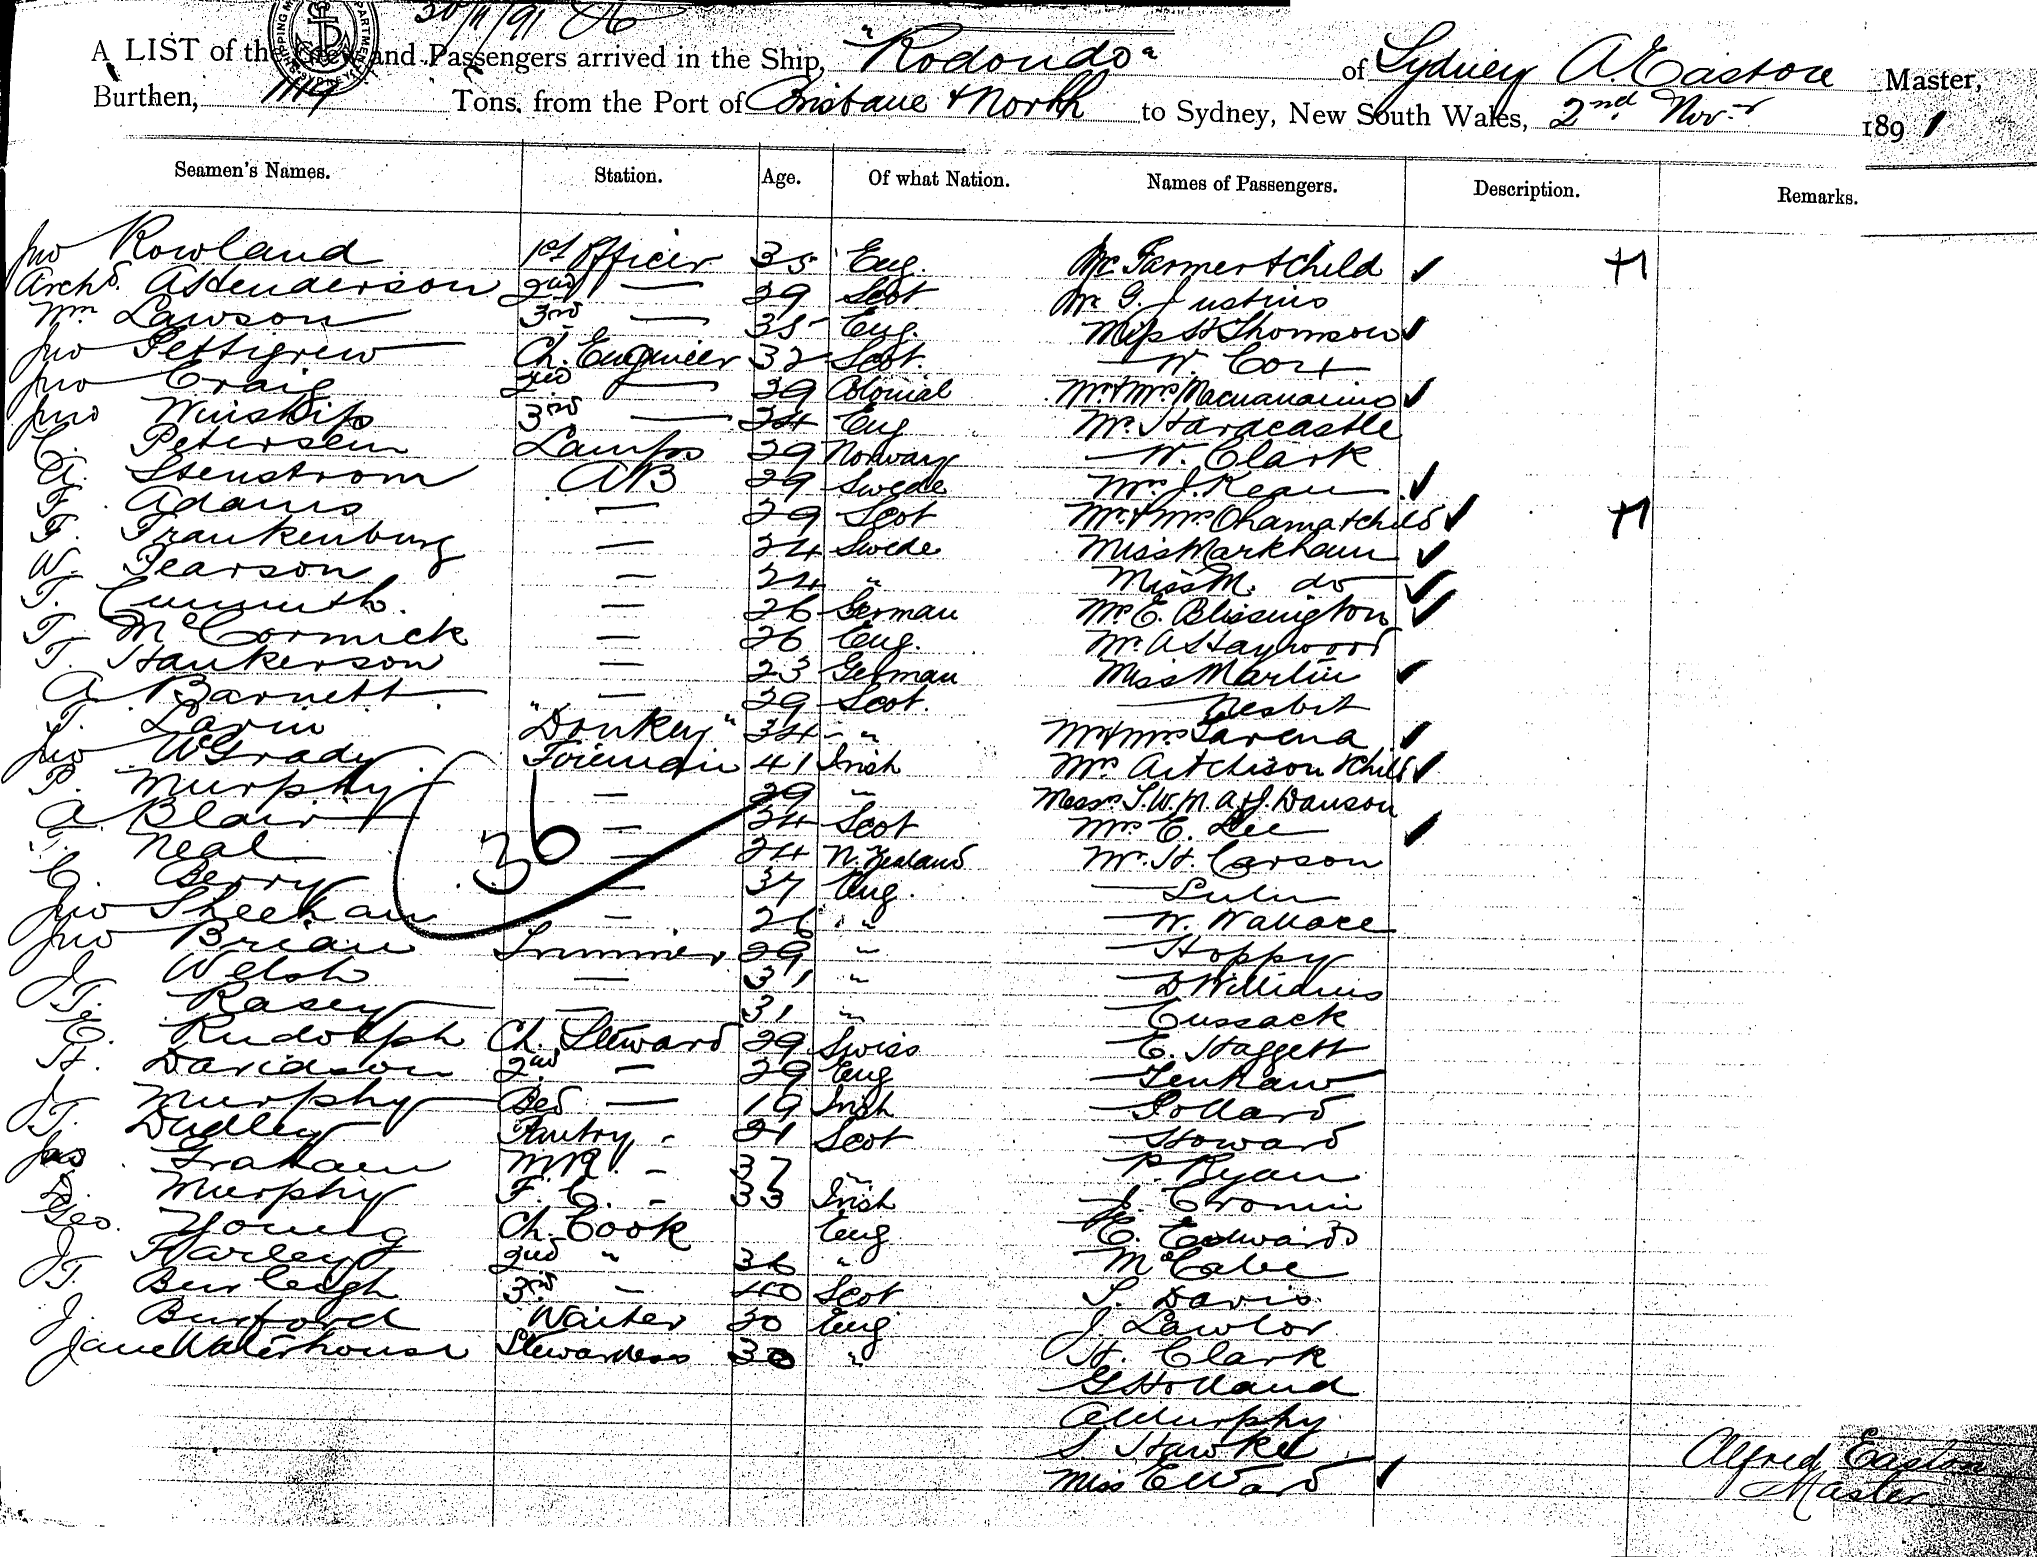 A LIST of the Crew and Passengers arrived in the Ship, "Rodondo" of Sydney A. Easton Master,
Burthen, 1119 Tons, from the Port of Brisbane & North to Sydney, New South Wales, 2nd Novr 1891
Seamen's Names. Station. Age. Of what Nation. Names of Passengers. Description. Remarks.
Jno Rowland 1st Officer 35 Eng. Farmer & Child
Archd. A Henderson 2nd — 29 Scot Mr G. Justins
Wm Lawson 3rd — 35 Eng. Miss H Thomson
Jno Pettigrew Ch. Engineer 32 Scot. — W. Cox
Jno Craig 2nd — 29 Colonial Mr & Mrs
Jno Winship 3rd — 24 Eng Mr. Hardcastle
C. Petersen Lamps 29 Norway — W. Clark
A. Stenstrom AB 29 Swede Mrs J. Kean
F. Adams — 29 Scot Mr & Mrs & child
F. Frankenburg — 24 Swede Miss Markham
W. Pearson — 24 " Miss M. do
T. — 26 German E. Blissington
T. McCormick — 26 Eng. Mr. A Haywood
T. Hankerson — 23 German Miss Martin
A. Barnett — 29 Scot. — Nesbit
T. Lavin "Donkey" 34 " Mr & Mrs
Jno McGrady Fireman 41 Irish Mrs Aitchison & child
P. Murphy — 29 " Messrs T. W. M. A & J. Dawson
A. Blair — 34 Scot Mrs E. Lee
T. Neal — 24 N. Zealand Mr. H. Carson
C. Berry — 37 Eng. — Lulu
Jno Sheehan — 26 " — W. Wallace
Jno Brian Trimmer 29 " — Hoppy
J. Welsh — 31 " — D Williams
T. Rasey — 31 " — Cussack
E. Rudolph Ch. Steward 29 Swiss — E. Haggett
H. Davidson 2nd — 29 Eng —
J. Murphy Bed — 19 Irish — Pollard
T. Dudley Pantry — 21 Scot — Howard
Jas Graham — 37 " P. Ryan
D. Murphy F. C. — 33 Irish J. Cronin
Geo. Young Ch. Cook Eng E. Edwards
J. Harley 2nd " 36 " McCabe
T. Burleigh 3rd — 40 Scot S. Davis
J. Burford Waiter 30 Eng J. Lawlor
Jane Waterhouse Stewardess 30 " H. Clark
G Holland
A Murphy
S Hawke
Miss E Ward
36
Alfred Easton
Master